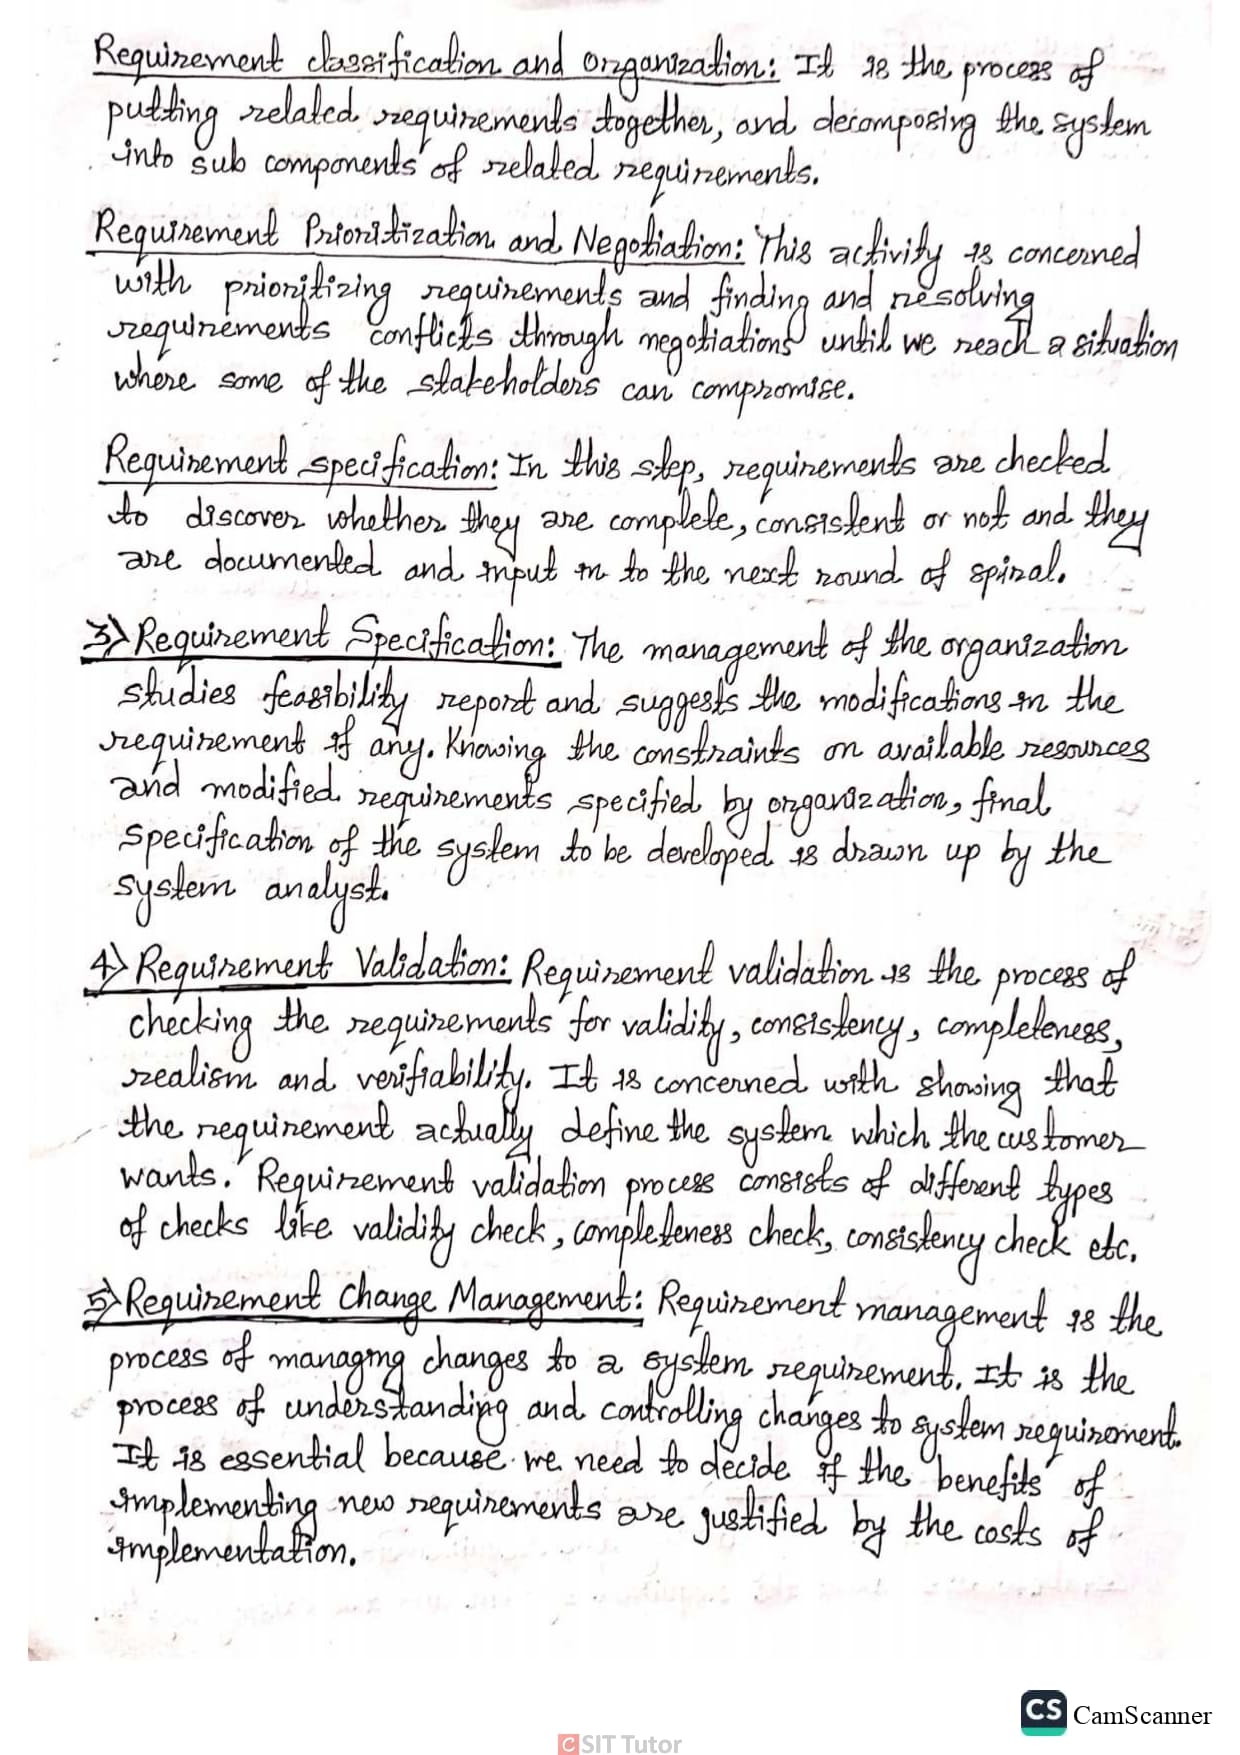 Requirement classification and organization: It is the process of
putting related requirements together, and decomposing the system
into sub components of related requirements.
Requirement Prioritization and Negotiation: This activity is concerned
with prioritizing requirements and finding and resolving
requirements conflicts through negotiations until we reach a situation
where some of the stakeholders can compromise.
Requirement specification: In this step, requirements are checked
to discover whether they are complete, consistent or not and they
are documented and input in to the next round of spiral.
3) Requirement Specification: The management of the organization
studies feasibility report and suggests the modifications in the
requirement if any. Knowing the constraints on available resources
and modified requirements specified by organization, final
specification of the system to be developed is drawn up by the
system analyst.
4) Requirement Validation: Requirement validation is the process of
checking the requirements for validity, consistency, completeness,
realism and verifiability. It is concerned with showing that
the requirement actually define the system which the customer
wants. Requirement validation process consists of different types
of checks like validity check, completeness check, consistency check etc.
5) Requirement Change Management: Requirement management is the
process of managing changes to a system requirement. It is the
process of understanding and controlling changes to system requirement.
It is essential because we need to decide if the benefits of
implementing new requirements are justified by the costs of
implementation.
CS CamScanner
CSIT Tutor